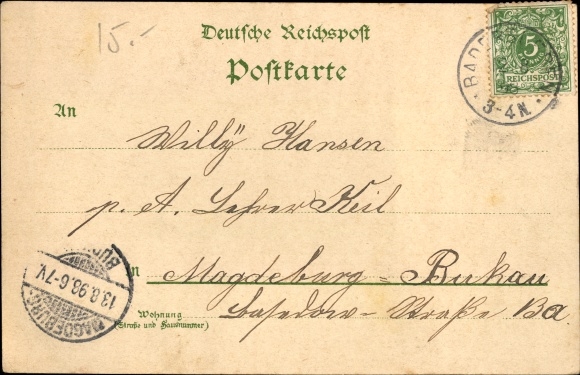 15.-
Deutsche Reichspost
Postkarte
5
REICHSPOST
BAD
3-4N.
An
Willÿ Hansen
p. A. Lehrer Keil
in Magdeburg-Bukau
Wohnung
(Straße und Hausnummer)
Basedow-Straße
MAGDEBURG
13.8.98.6-7V